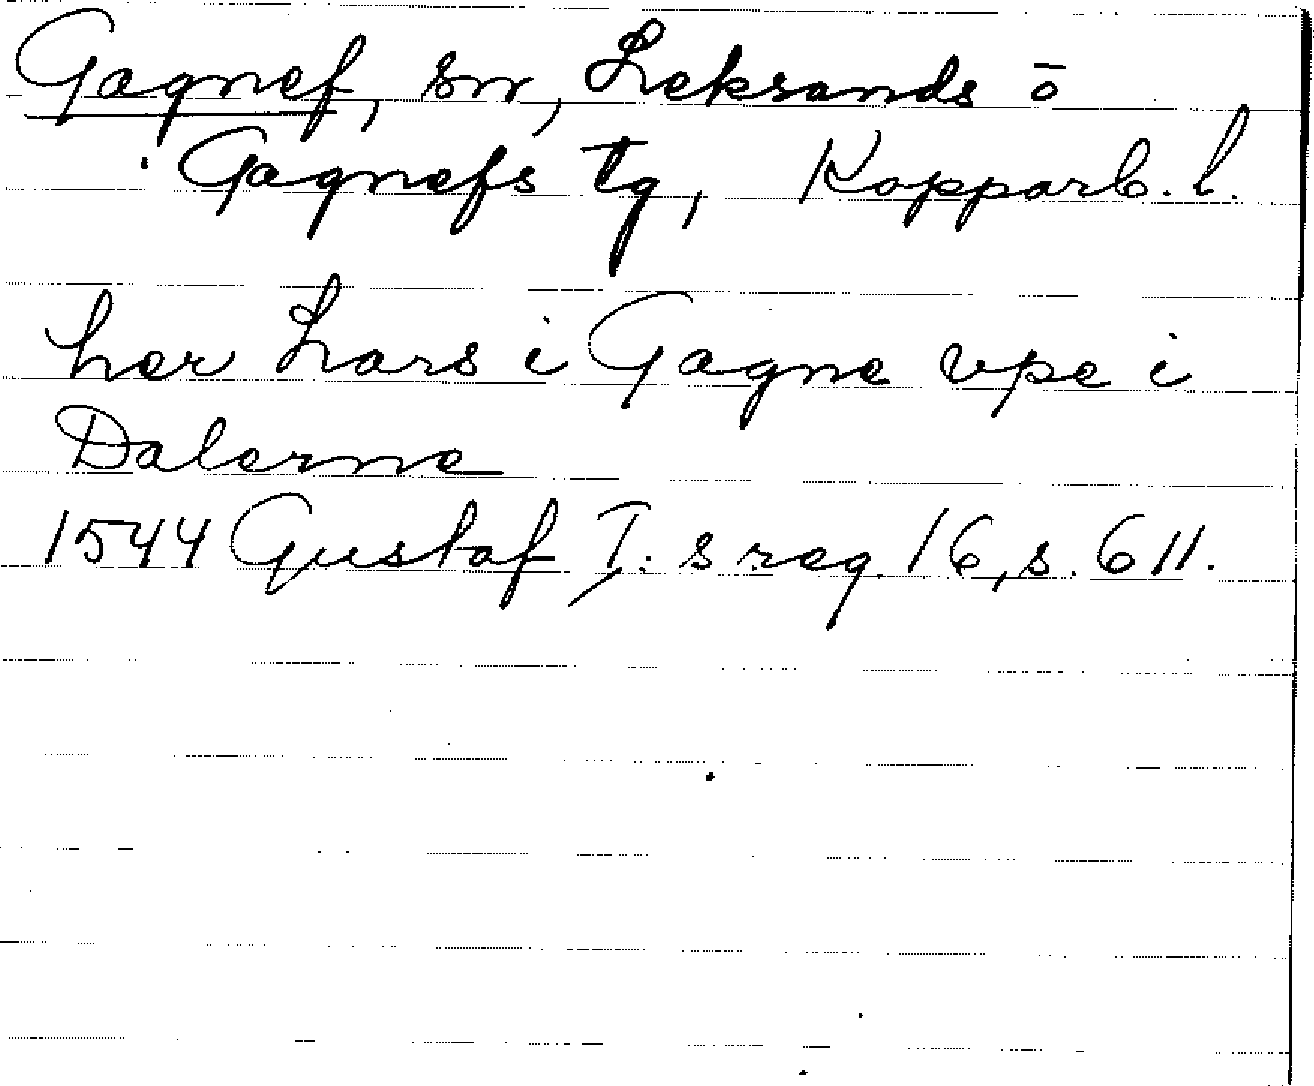 Gagnef, sn, Leksands o
Gagnefs tg, Kopparb. l.
her Lars i Gagne vpe i
Dalerne
1544 Gustaf I:s reg. 16, s. 611.